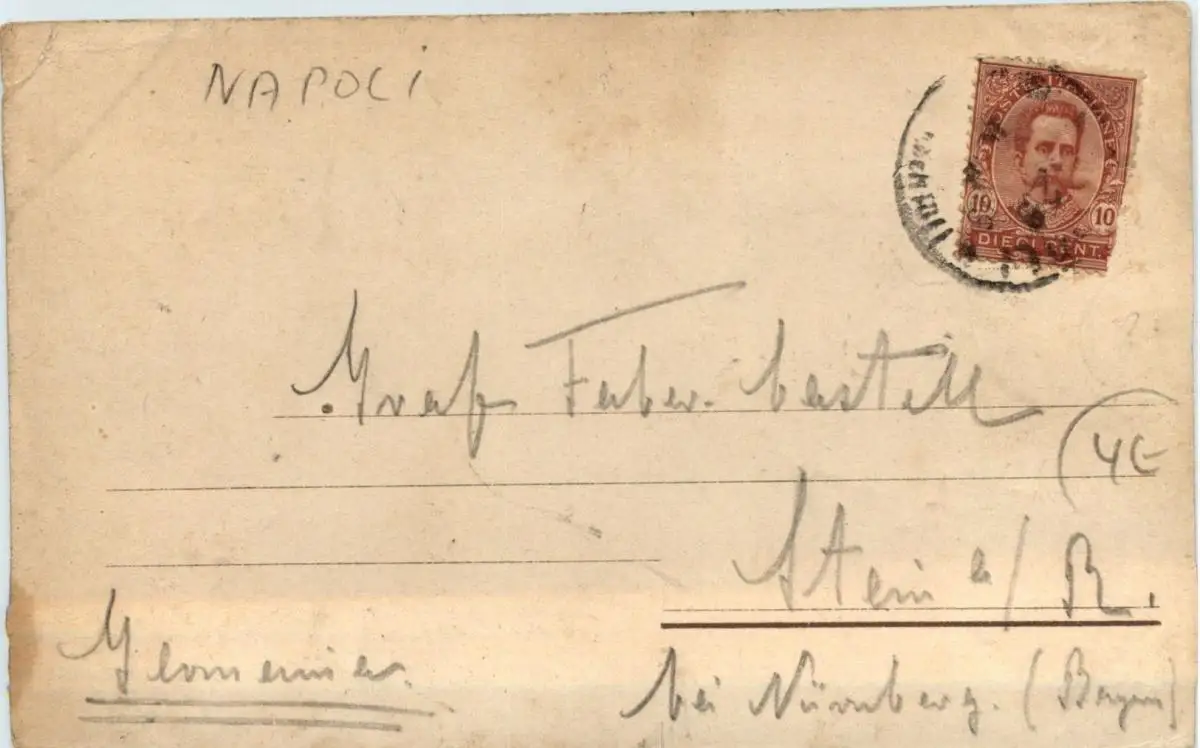 NAPOLI
POSTE ITALIANE
10 10
DIECI CENT.
Graf Faber-Castell
4E
Stein a/R.
Germania.
bei Nürnberg. (Bayern)